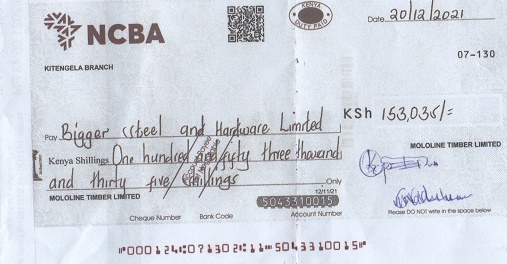 NCBA
KENYA
DUTY PAID
Date 20/12/2021
07-130
KITENGELA BRANCH
Pay Bigger Steel and Hardware Limited
KSh 153,035/=
Kenya Shillings One hundred and fifty three thousand
and thirty five shillings Only
MOLOLINE TIMBER LIMITED
MOLOLINE TIMBER LIMITED
12/11/21
5043310015
Cheque Number Bank Code Account Number
Please DO NOT write in the space below
"000124"07130211"5043310015"